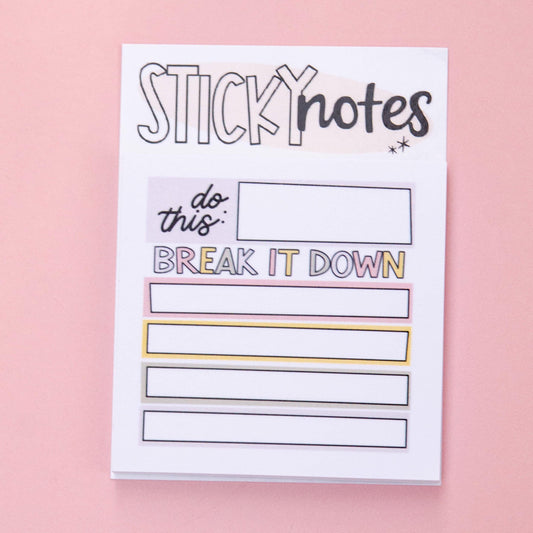 STICKY notes
do
this:
BREAK IT DOWN